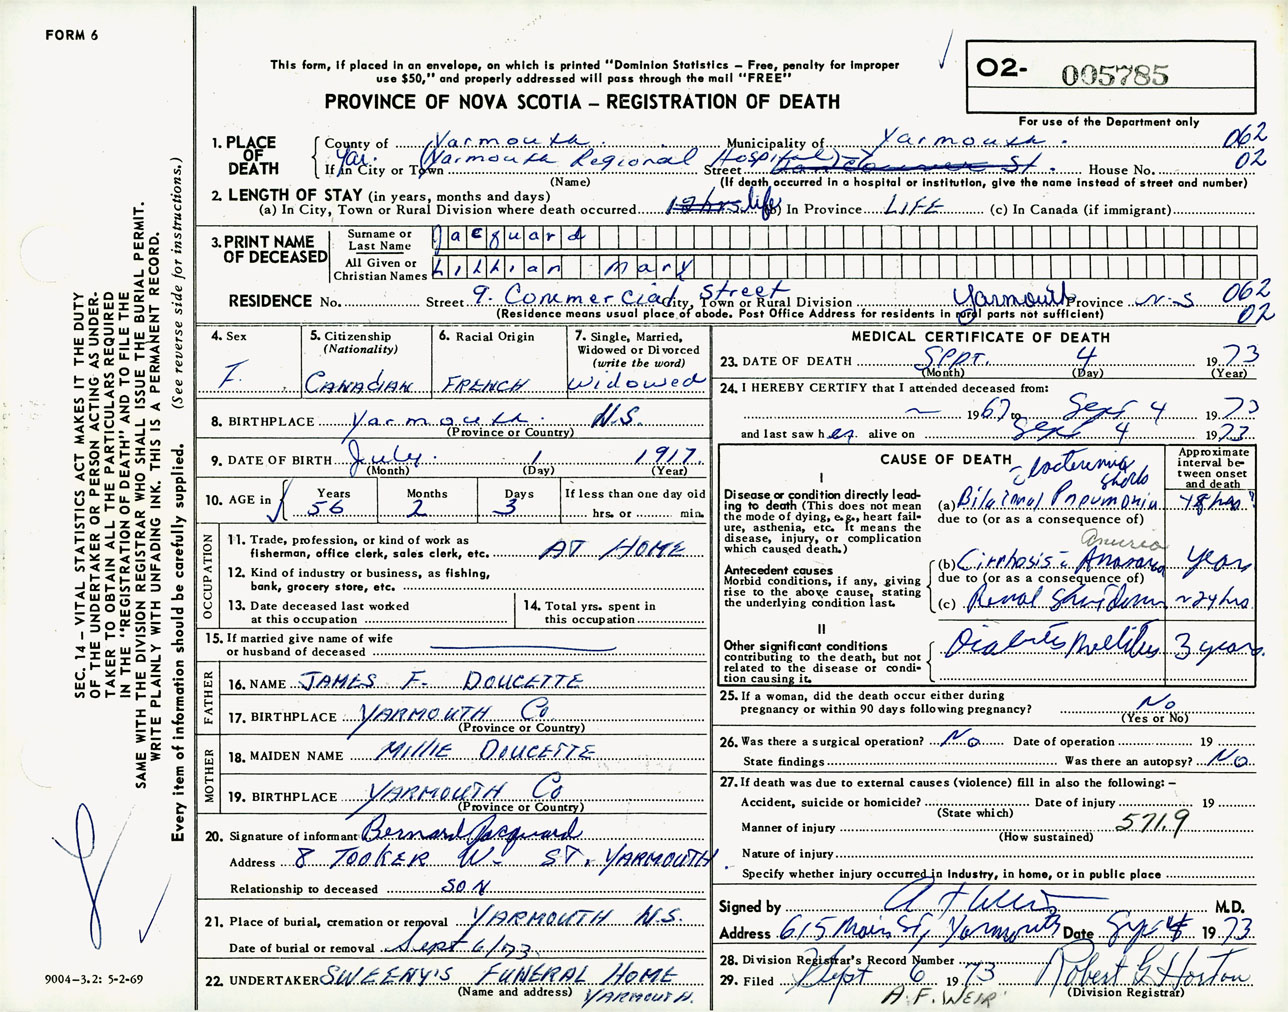 FORM 6
This form, if placed in an envelope, on which is printed "Dominion Statistics – Free, penalty for improper
use $50," and properly addressed will pass through the mail "FREE"
PROVINCE OF NOVA SCOTIA – REGISTRATION OF DEATH
O2- 005785
For use of the Department only
1. PLACE OF DEATH County of Yarmouth Municipality of Yarmouth 062
If in City or Town Yar. (Yarmouth Regional Hospital) Street St. House No. 02
(Name) (If death occurred in a hospital or institution, give the name instead of street and number)
2. LENGTH OF STAY (in years, months and days)
(a) In City, Town or Rural Division where death occurred 12 hrs life (b) In Province LIFE (c) In Canada (if immigrant)
3. PRINT NAME OF DECEASED
Surname or Last Name Jacquard
All Given or Christian Names Lillian Mary
RESIDENCE No. Street 9. Commercial Street City, Town or Rural Division Yarmouth Province N-S 062
(Residence means usual place of abode. Post Office Address for residents in rural parts not sufficient) 02
4. Sex F.
5. Citizenship (Nationality) CANADIAN
6. Racial Origin FRENCH
7. Single, Married, Widowed or Divorced (write the word) Widowed
8. BIRTHPLACE Yarmouth N.S.
(Province or Country)
9. DATE OF BIRTH July 1 1917
(Month) (Day) (Year)
10. AGE in Years 56 Months 2 Days 3 If less than one day old hrs. or min.
OCCUPATION
11. Trade, profession, or kind of work as fisherman, office clerk, sales clerk, etc. AT HOME
12. Kind of industry or business, as fishing, bank, grocery store, etc.
13. Date deceased last worked at this occupation
14. Total yrs. spent in this occupation
15. If married give name of wife or husband of deceased
FATHER
16. NAME JAMES F. DOUCETTE
17. BIRTHPLACE YARMOUTH Co
(Province or Country)
MOTHER
18. MAIDEN NAME Millie DOUCETTE
19. BIRTHPLACE YARMOUTH Co
(Province or Country)
20. Signature of informant Bernard Jacquard
Address 8 TOOKER W- ST. YARMOUTH
Relationship to deceased SON
21. Place of burial, cremation or removal YARMOUTH N.S.
Date of burial or removal Sept 6/73
22. UNDERTAKER SWEENY'S FUNERAL HOME
(Name and address) YARMOUTH.
MEDICAL CERTIFICATE OF DEATH
23. DATE OF DEATH SEPT. 4 1973
(Month) (Day) (Year)
24. I HEREBY CERTIFY that I attended deceased from:
1967 to Sept 4 1973
and last saw her alive on Sept 4 1973
CAUSE OF DEATH
Approximate interval between onset and death
I
Disease or condition directly leading to death (This does not mean the mode of dying, e.g., heart failure, asthenia, etc. It means the disease, injury, or complication which caused death.)
(a) Bilateral Pneumonia 48 hrs?
due to (or as a consequence of)
Antecedent causes
Morbid conditions, if any, giving rise to the above cause, stating the underlying condition last.
Anuria
(b) Cirrhosis Anasarca years
due to (or as a consequence of)
(c) Renal Shutdown ~24 hrs
II
Other significant conditions contributing to the death, but not related to the disease or condition causing it.
Diabetes Mellitus 3 years.
25. If a woman, did the death occur either during pregnancy or within 90 days following pregnancy? No
(Yes or No)
26. Was there a surgical operation? No Date of operation 19
State findings Was there an autopsy? No
27. If death was due to external causes (violence) fill in also the following: –
Accident, suicide or homicide? Date of injury 19
(State which)
Manner of injury 571.9
(How sustained)
Nature of injury
Specify whether injury occurred in Industry, in home, or in public place
Signed by M.D.
Address 615 Main St, Yarmouth Date Sept 4 1973
28. Division Registrar's Record Number
29. Filed Sept 6 1973 Robert G Horton
(Division Registrar)
A.F. WEIR
SEC. 14 – VITAL STATISTICS ACT MAKES IT THE DUTY
OF THE UNDERTAKER OR PERSON ACTING AS UNDER-
TAKER TO OBTAIN ALL THE PARTICULARS REQUIRED
IN THE "REGISTRATION OF DEATH" AND TO FILE THE
SAME WITH THE DIVISION REGISTRAR WHO SHALL ISSUE THE BURIAL PERMIT.
WRITE PLAINLY WITH UNFADING INK. THIS IS A PERMANENT RECORD.
Every item of information should be carefully supplied. (See reverse side for instructions.)
9004–3.2: 5-2-69